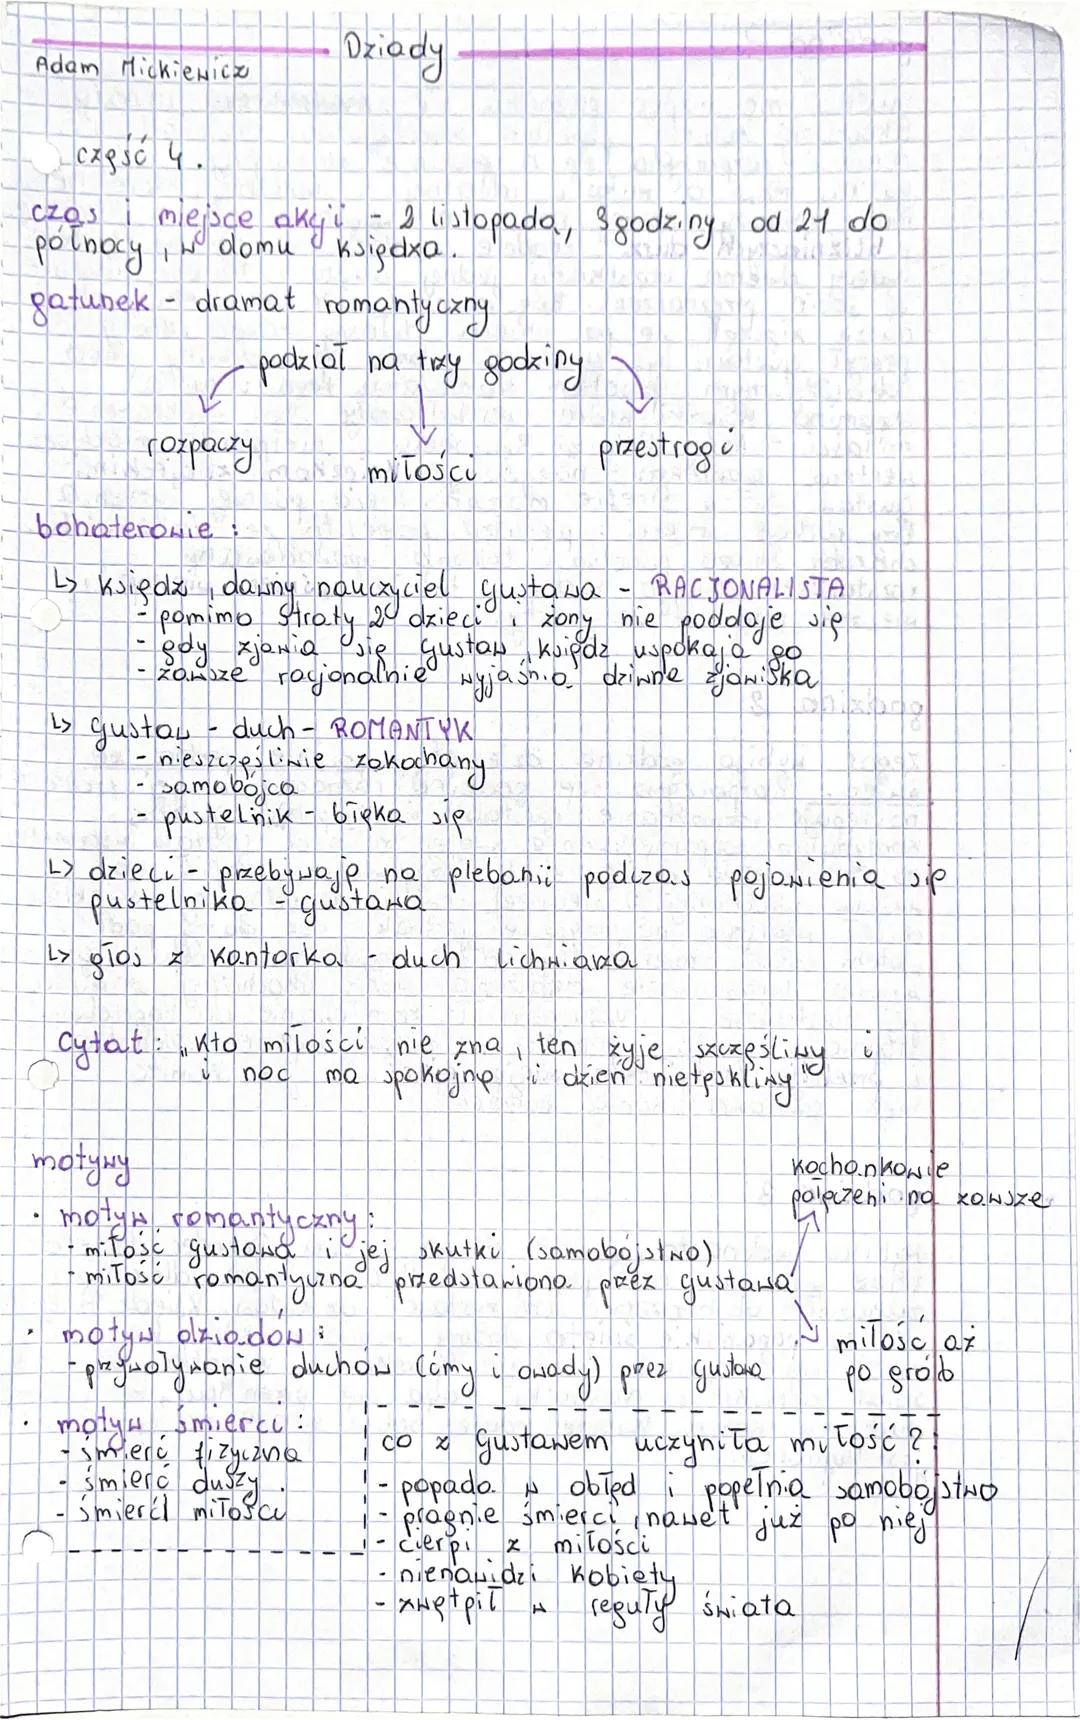 Dziady
Adam Mickiewicz
część 4.
czas i miejsce akcji - 2 listopada, 3 godziny od 21 do
północy, w domu księdza.
gatunek - dramat romantyczny
podział na trzy godziny
rozpaczy
miłości
przestrogi
bohaterowie:
↳ ksiądz, dawny nauczyciel Gustawa - RACJONALISTA
- pomimo straty 2 dzieci i żony nie poddaje się
- gdy zjawia się Gustaw, ksiądz uspokaja go
- zawsze racjonalnie wyjaśnia dziwne zjawiska
↳ Gustaw - duch - ROMANTYK
- nieszczęśliwie zakochany
- samobójca
- pustelnik - błąka się
↳ dzieci - przebywają na plebanii podczas pojawienia się
pustelnika - Gustawa
↳ głos z kantorka - duch lichwiarza
Cytat: „Kto miłości nie zna, ten żyje szczęśliwy i
i noc ma spokojną i dzień nietęskliwy"
motywy
• motyw romantyczny:
- miłość Gustawa i jej skutki (samobójstwo)
- miłość romantyczna przedstawiona przez Gustawa
kochankowie
połączeni na zawsze
miłość aż
po grób
• motyw dziadów:
- przywoływanie duchów (ćmy i owady) przez Gustawa
• motyw śmierci:
- śmierć fizyczna
- śmierć duszy
- śmierć miłości
co z Gustawem uczyniła miłość?
- popada w obłęd i popełnia samobójstwo
- pragnie śmierci, nawet już po niej
- cierpi z miłości
- nienawidzi kobiety
- zwątpił w reguły świata